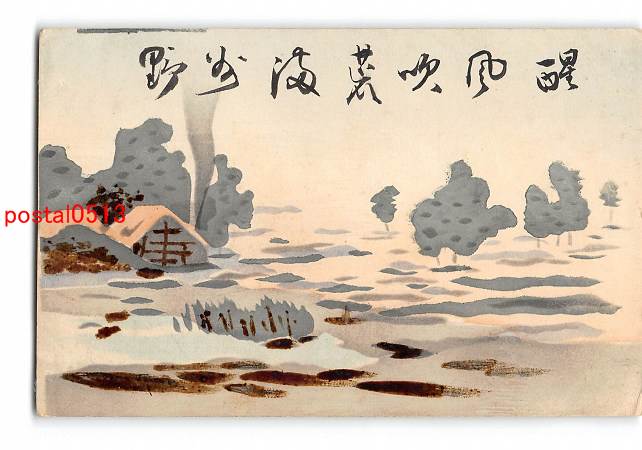 醒風吹荒満州野
postal0513